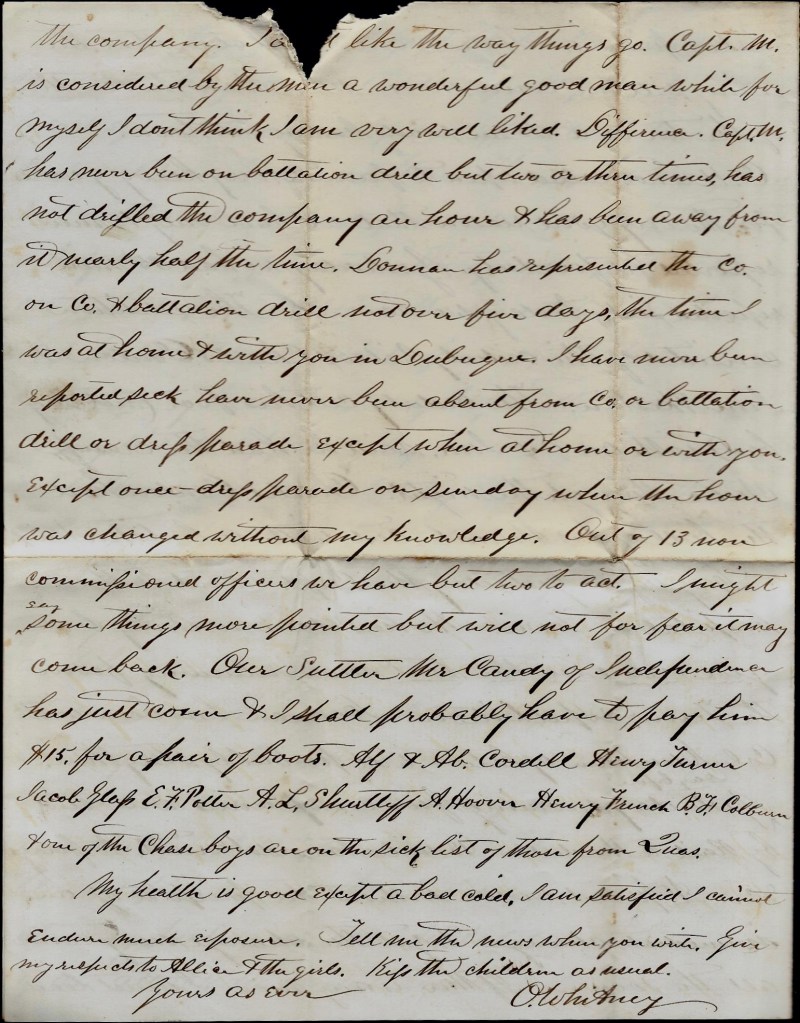 the company. I like the way things go. Capt. M.
is considered by the men a wonderful good man while for
myself I dont think I am very well liked. Difference. Capt. M.
has never been on battation drill but two or three times, has
not drilled the company an hour & has been away from
it nearly half the time. Donnan has represented the Co.
on Co. & battalion drill not over five days, the time I
was at home & with you in Dubuque. I have never been
reported sick have never been absent from Co. or battation
drill or dress parade except when at home or with you.
Except once dress parade on sunday when the hour
was changed without my knowledge. Out of 13 non
commissioned officers we have but two to act. I might
say
some things more pointed but will not for fear it may
come back. Our Suttler Mr Candy of Independence
has just come & I shall probably have to pay him
$15. for a pair of boots. Alf & Ab. Cordell Henry Turner
Jacob Glass E. F. Potter A. L. Shurtleff A. Hoover Henry French B. F. Colburn
& one of the Chase boys are on the sick list of those from Quas.
My health is good except a bad cold, I am satisfied I cannot
endure much exposure. Tell me the news when you write. Give
my respects to Allice & the girls. Kiss the children as usual.
Yours as Ever O. Whitney